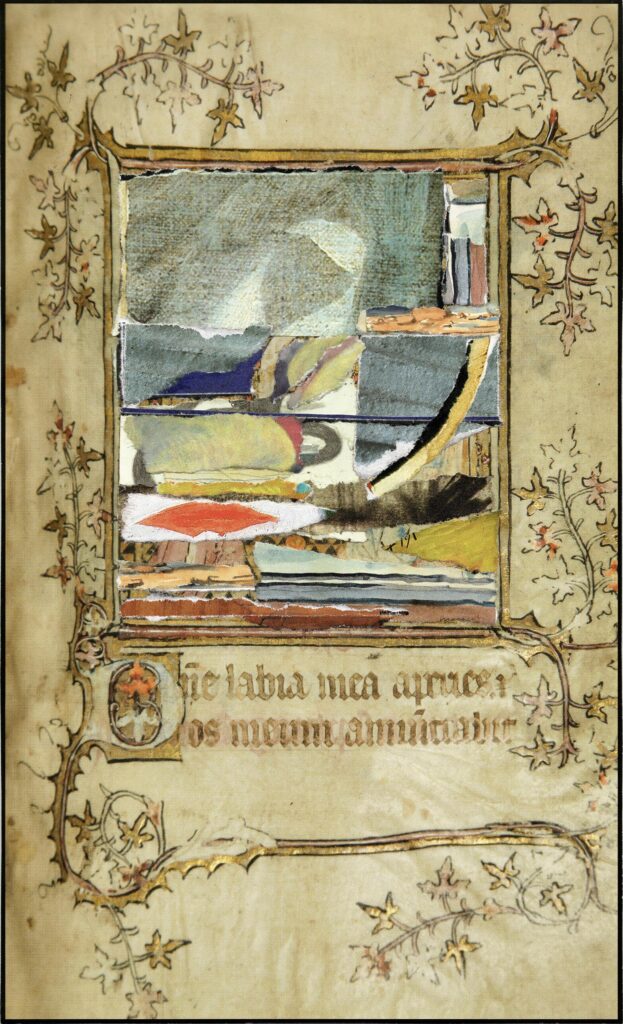 Dñe labia mea aperies
os meum annũtiabit